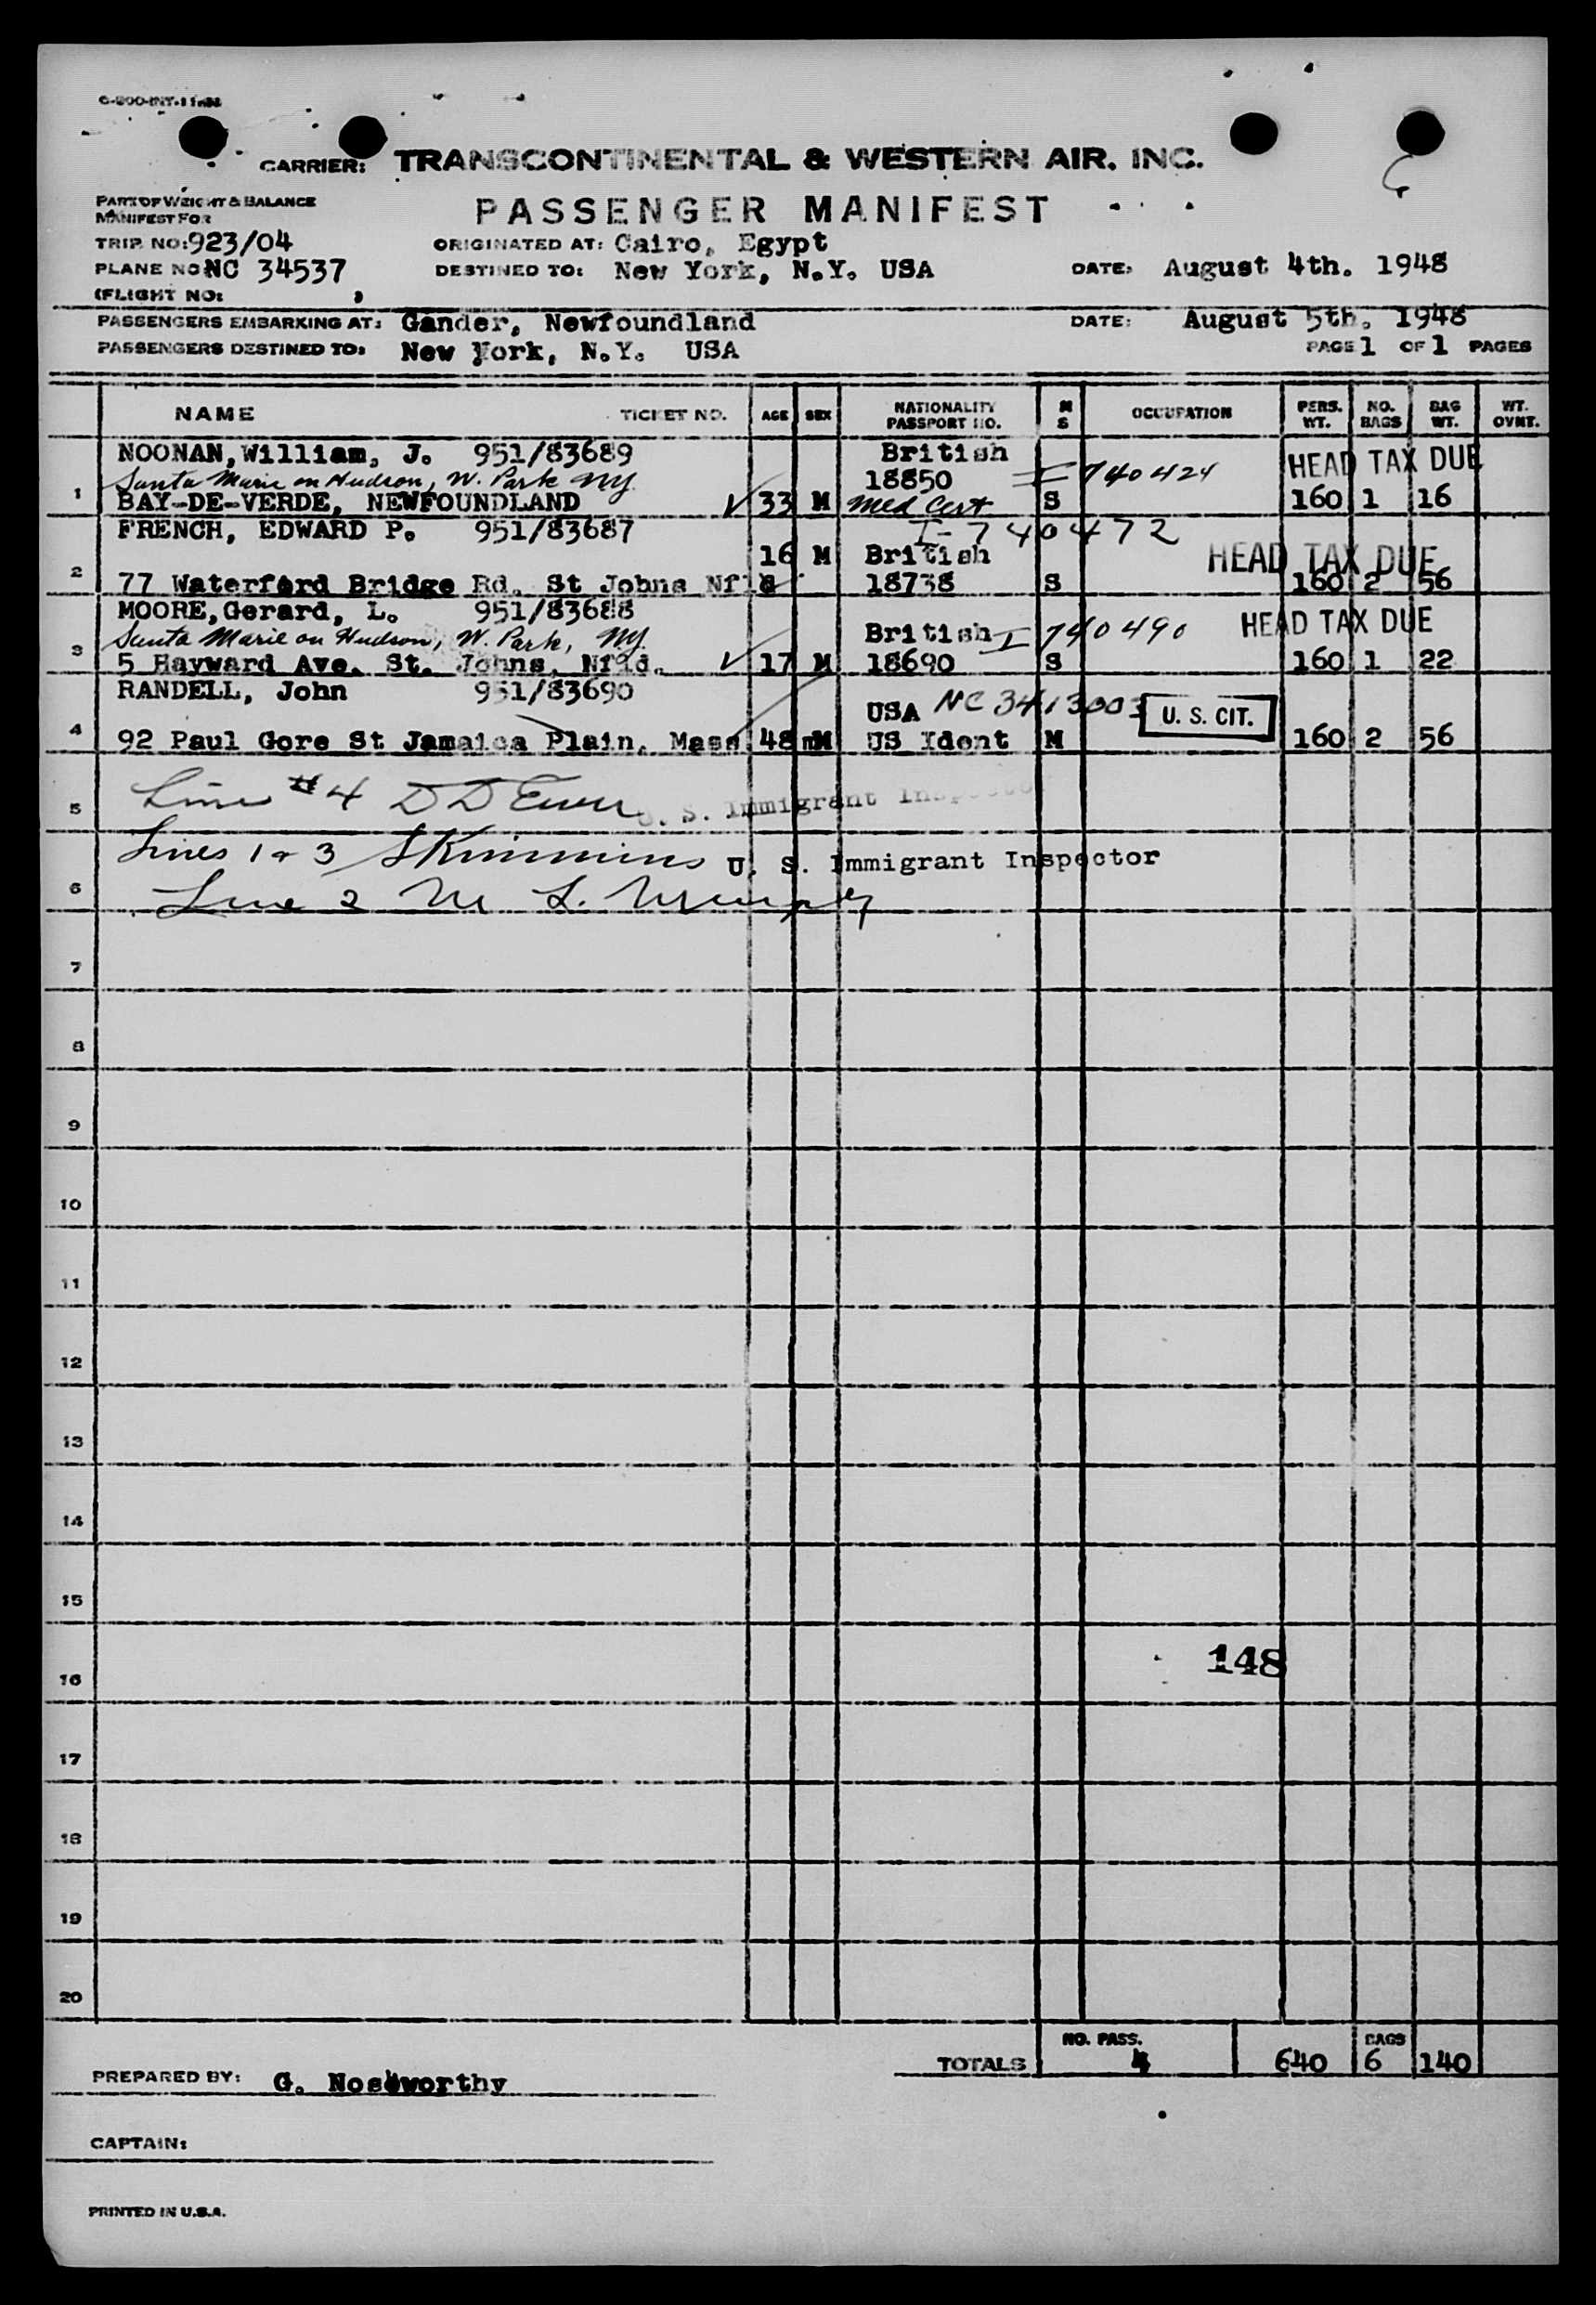 CARRIER: TRANSCONTINENTAL & WESTERN AIR. INC.
PART OF WEIGHT & BALANCE
MANIFEST FOR
PASSENGER MANIFEST
TRIP. NO: 923/04 ORIGINATED AT: Cairo, Egypt
PLANE NO: NC 34537 DESTINED TO: New York, N.Y. USA DATE: August 4th. 1948
(FLIGHT NO: )
PASSENGERS EMBARKING AT: Gander, Newfoundland DATE: August 5th. 1948
PASSENGERS DESTINED TO: New York, N.Y. USA PAGE 1 OF 1 PAGES
NAME TICKET NO. AGE SEX NATIONALITY PASSPORT NO. M S OCCUPATION PERS. WT. NO. BAGS BAG WT. WT. OVNT.
NOONAN, William, J. 951/83689 British HEAD TAX DUE
Santa Marie on Hudson, W. Park NY. 18850 I 740424
1 BAY-DE-VERDE, NEWFOUNDLAND 33 M Med Cert S 160 1 16
FRENCH, EDWARD P. 951/83687 I-740472
16 M British HEAD TAX DUE
2 77 Waterford Bridge Rd. St Johns Nfld 18738 S 160 2 56
MOORE, Gerard, L. 951/83688
Santa Marie on Hudson, W. Park, NY. British I 740490 HEAD TAX DUE
3 5 Hayward Ave. St. Johns, Nfld. 17 M 18690 S 160 1 22
RANDELL, John 951/83690
USA NC 3413003 U. S. CIT.
4 92 Paul Gore St Jamaica Plain, Mass 48 M US Ident M 160 2 56
5 Line #4 D D U. S. Immigrant Inspector
Lines 1 & 3 Skimmins U. S. Immigrant Inspector
6 Line 2 M L. Murphy
7
8
9
10
11
12
13
14
15
148
16
17
18
19
20
NO. PASS. BAGS
TOTALS 4 640 6 140
PREPARED BY: G. Noseworthy
CAPTAIN:
PRINTED IN U.S.A.